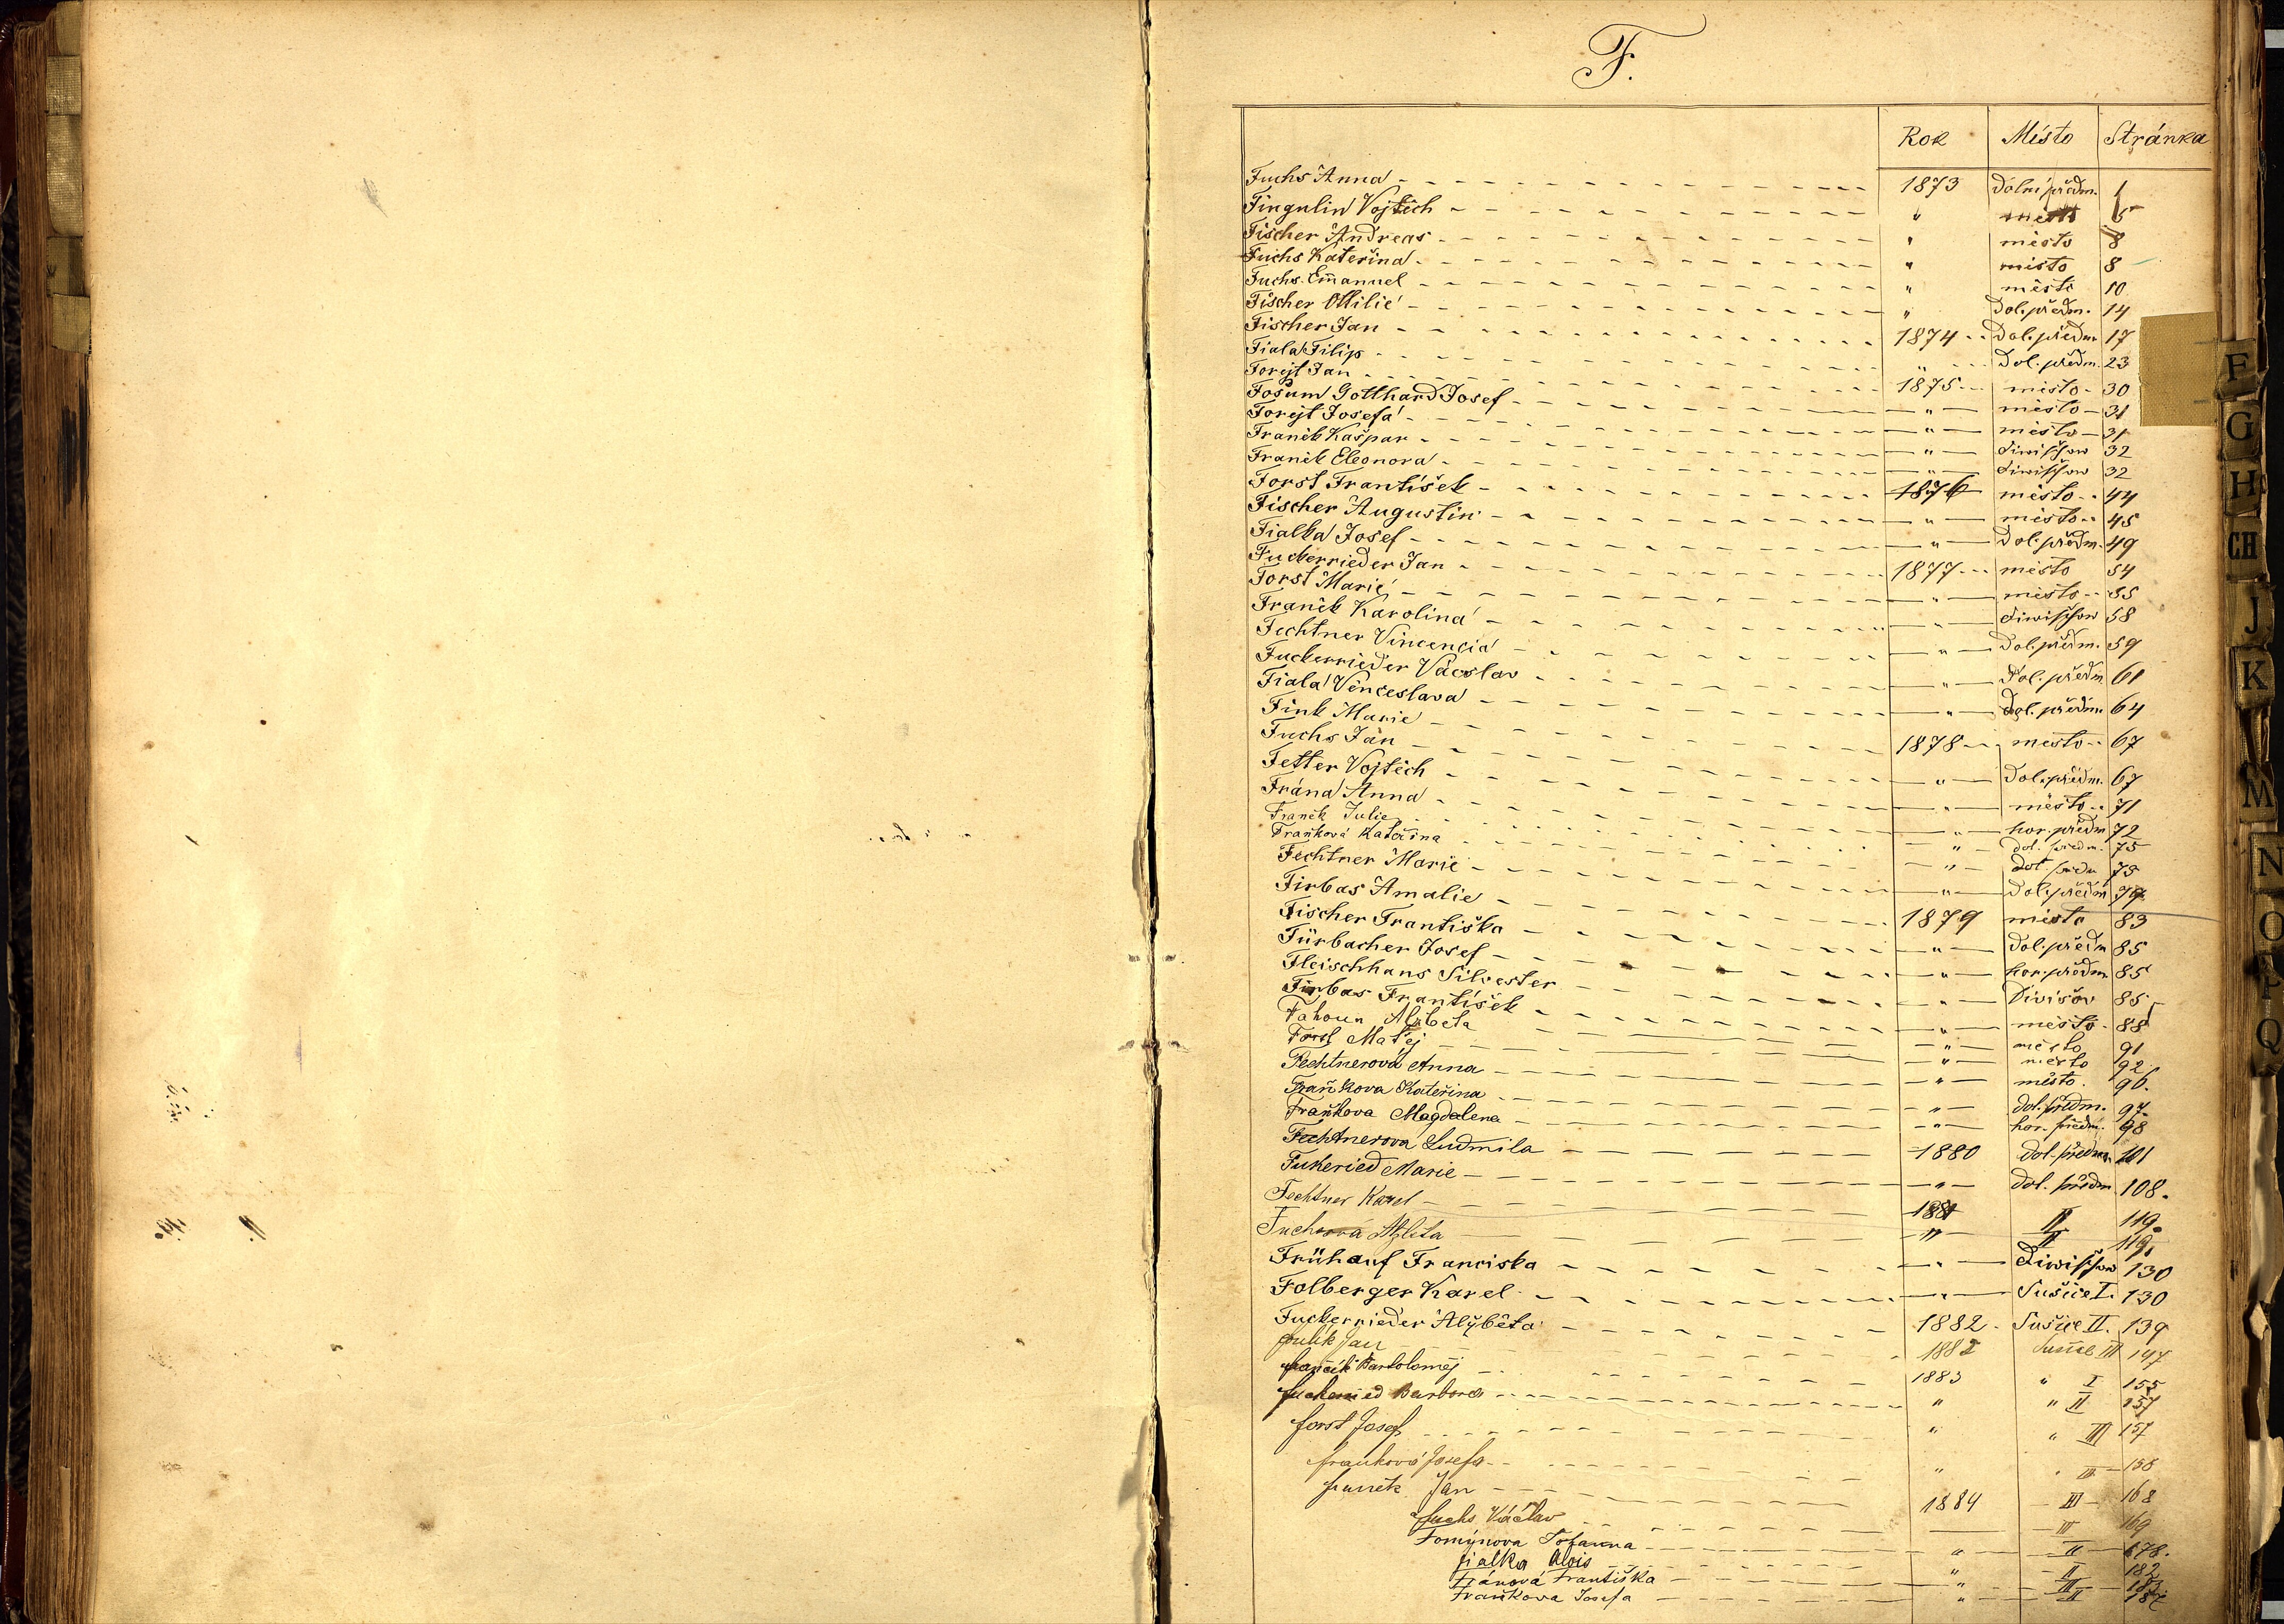 F.
Rok Místo Stránka
Fuchs Anna 1873 Dolní předm. 1
Fingulin Vojtěch " město 5
Fischer Andreas " město 8
Fuchs Kateřina " město 8
Fuchs Emanuel " město 10
Fischer Ottilie " Dol. předm. 14
Fischer Jan 1874 Dol. předm. 17
Fiala Filip " Dol. předm. 23
Forejt Jan 1875 město 30
Fošum Gotthard Josef " město 31
Forejt Josefa " město 31
Franěk Kašpar " Diwischow 32
Franěk Eleonora " Diwischow 32
Forst František 1876 město 44
Fischer Augustin " město 45
Fialka Josef " Dol. předm. 49
Fuckerrieder Jan 1877 město 54
Forst Marie " město 55
Franěk Karolina " Diwischow 58
Fechtner Vincencia " Dol. předm. 59
Fuckerrieder Václav " Dol. předm. 61
Fiala Venceslava " Dol. předm. 64
Fink Marie 1878 město 67
Fuchs Jan " Dol. předm. 67
Fetter Vojtěch " město 71
Frána Anna " hor. předm 72
Franěk Julie " dol. předm. 75
Fraňková Kateřina " dol. předm 75
Fechtner Marie " Dol. předm 79
Firbas Amalie 1879 město 83
Fischer Františka " Dol. předm 85
Fürbacher Josef " hor. předm. 85
Fleischhans Silvester " Divišov 85
Firbas František " město 88
Fahoun Alžběta " město 91
Forst Matěj " město 92
Fechtnerová Anna " město. 96.
Fraňkova Kateřina " dol. předm. 97.
Fraňkova Magdalena " hor. předm. 98
Fechtnerova Ludmila 1880 dol. předm. 101
Fukeried Marie " dol. předm. 108.
Fechtner Karel 1881 II 119.
Fuchsová Alžběta " II 119.
Frühauf Franciska " Diwischow 130
Folberger Karel " Sušice I. 130
Fuckerrieder Alžběta 1882 Sušice II. 139
Jan 1882 Sušice III 147
Bartoloměj 1883 " I 155
Fuckeried Barbora " " II 157
Forst Josef " " III 157
Fraňková Josefa " " III 158
Jan 1884 III 168
Fuchs Václav III 169
Fomýnova " II 178.
Fialka Alois " II 182
Fránová Františka " III
Fraňkova Josefa " II
F
G
H
CH
J
K
M
N
O
P
Q